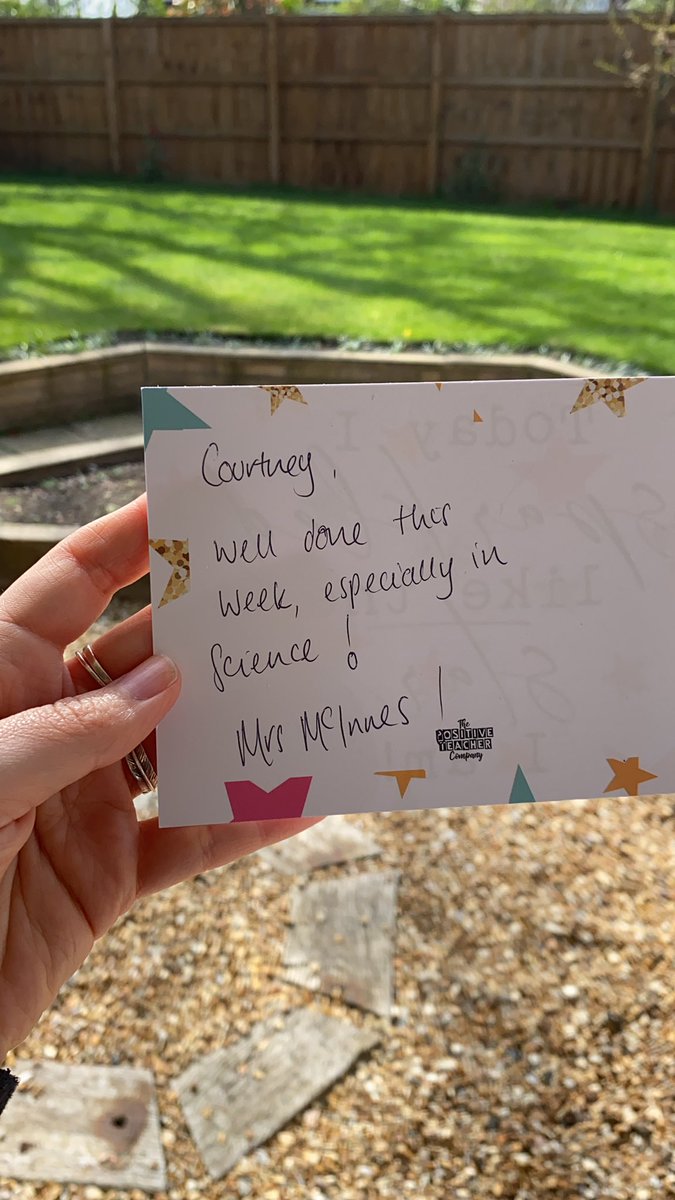 Courtney,
Well done this
week, especially in
Science!
Mrs McInnes
The
POSITIVE
TEACHER
Company
Today I
like